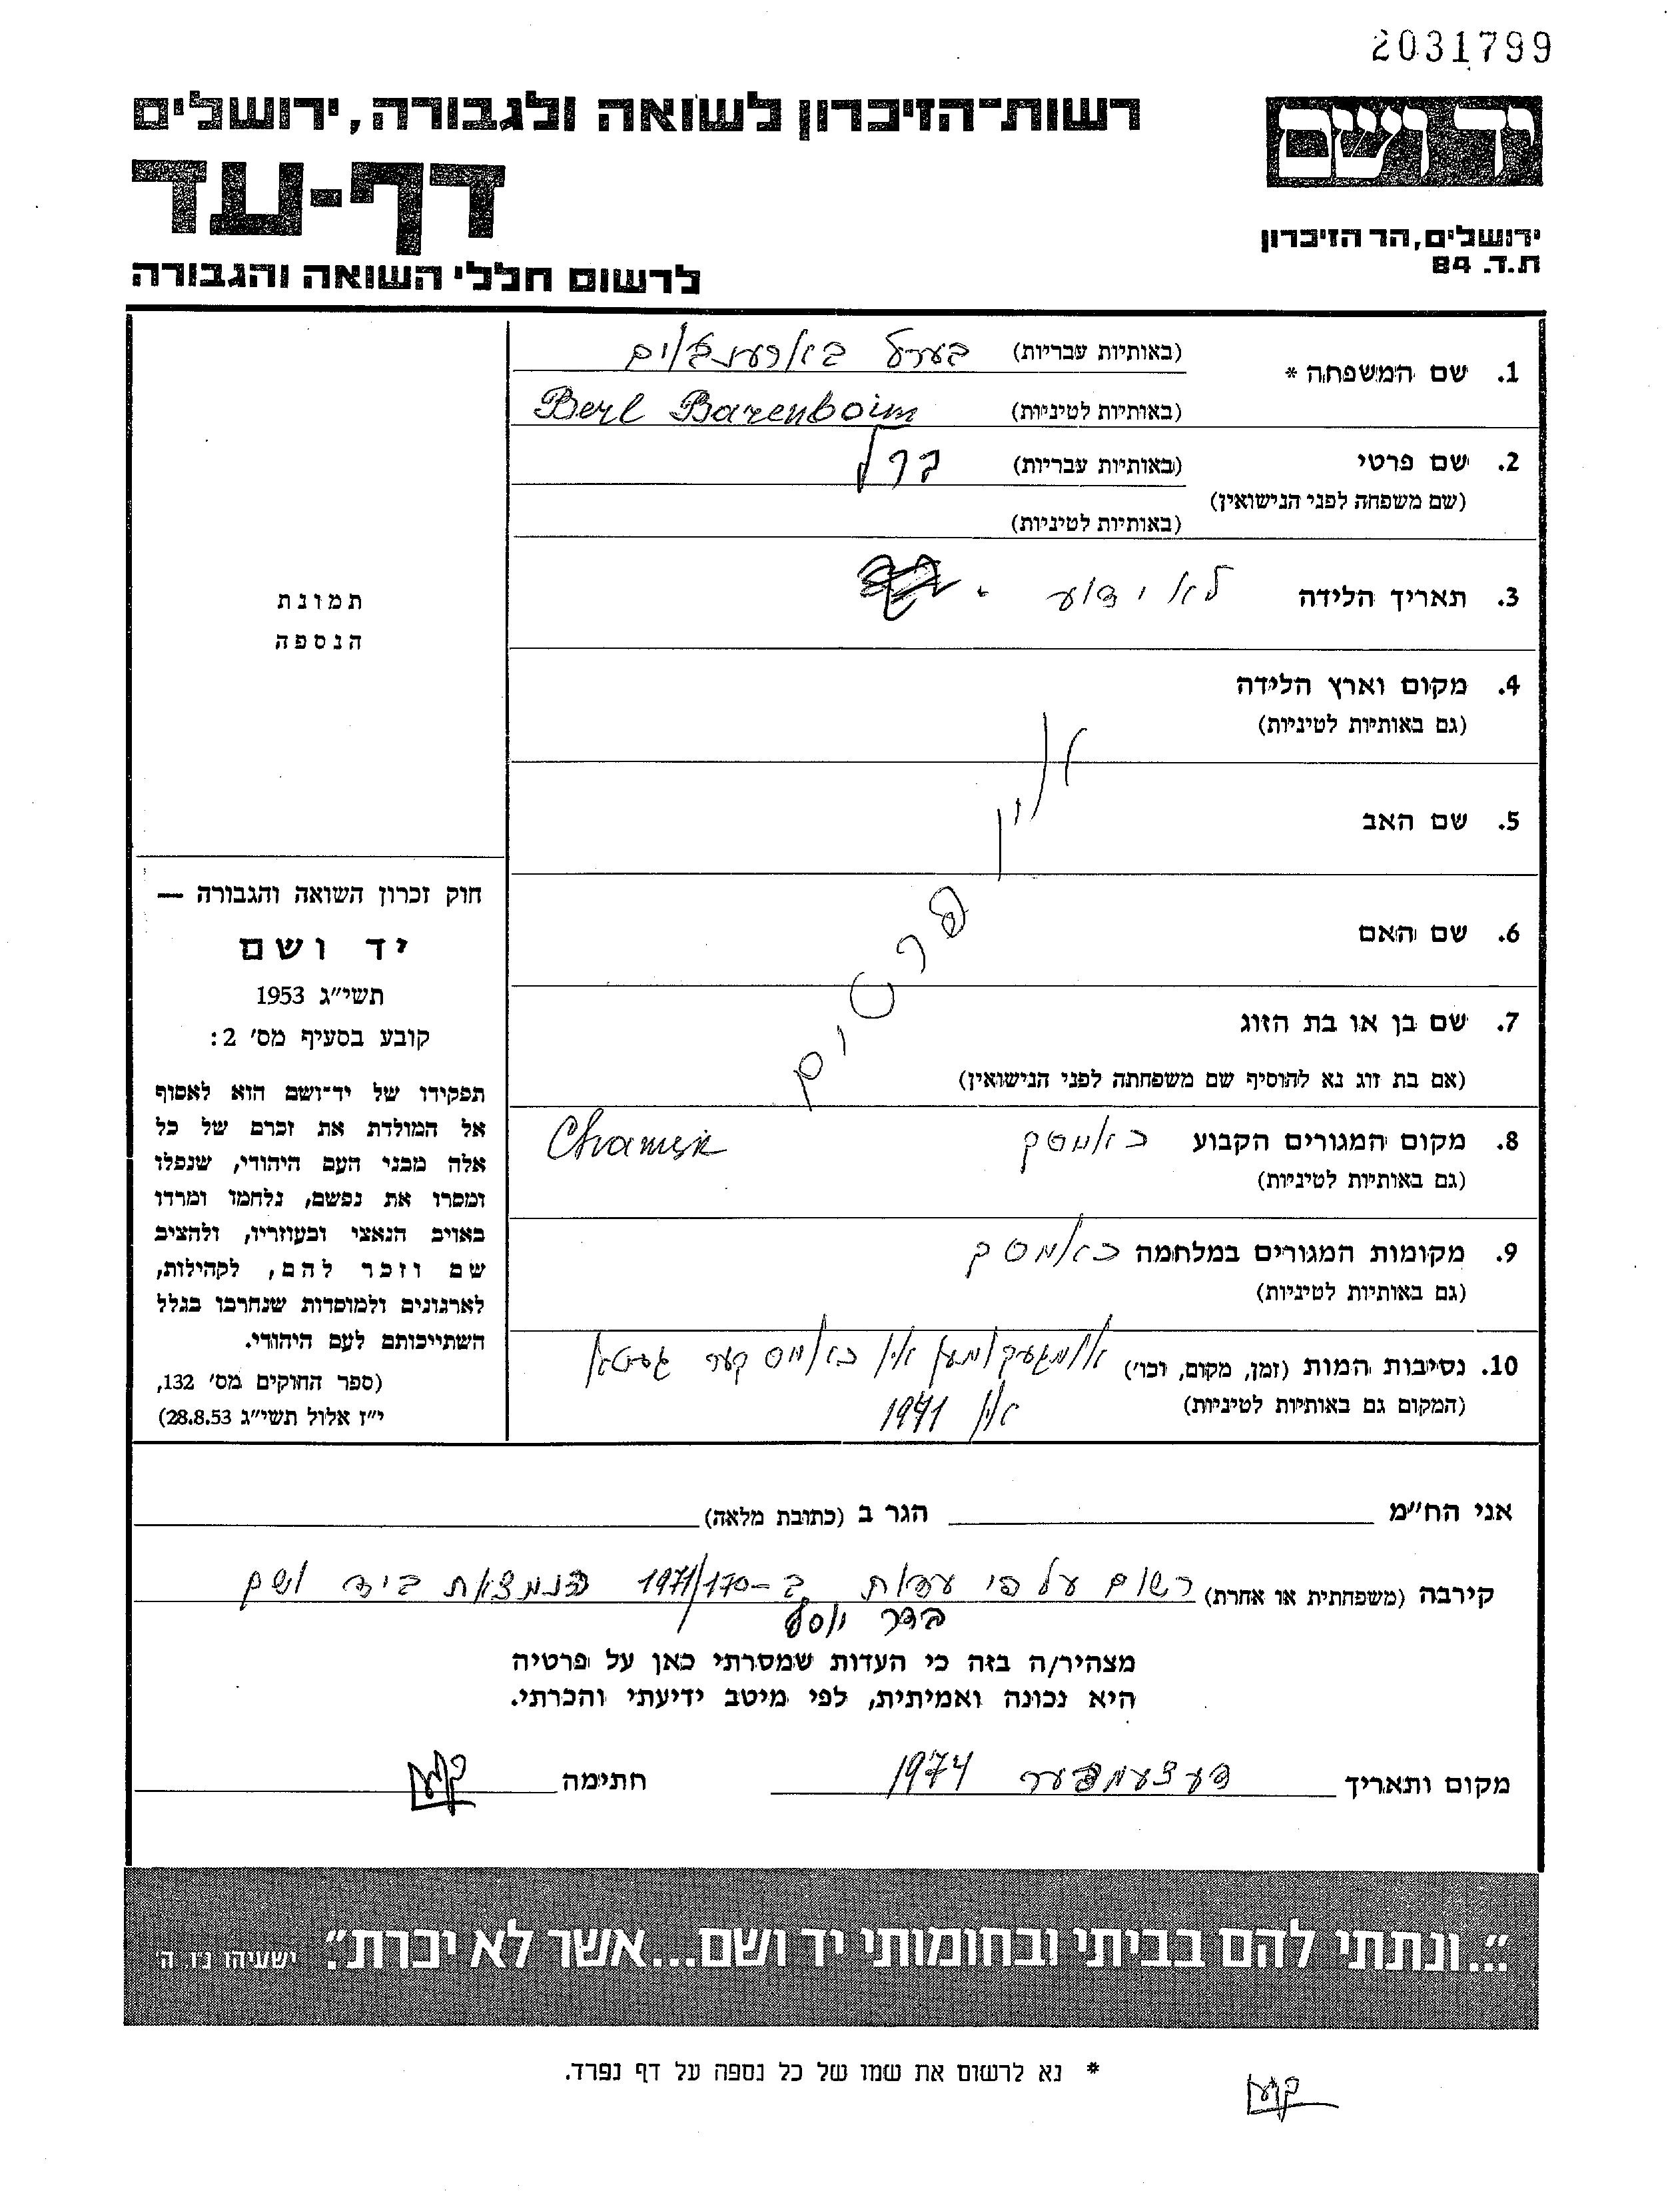 2031799
יד ושם
רשות־הזיכרון לשואה ולגבורה, ירושלים
דף-עד
ירושלים, הר הזיכרון
ת.ד. 84
לרשום חללי השואה והגבורה
1. שם המשפחה * (באותיות עבריות) בערל בארענבוים
(באותיות לטיניות) Berl Barenboim
2. שם פרטי (באותיות עבריות) ברל
(שם משפחה לפני הנישואין)
(באותיות לטיניות)
3. תאריך הלידה לא ידוע.
4. מקום וארץ הלידה
(גם באותיות לטיניות)
אין
5. שם האב
6. שם האם
פרטים
7. שם בן או בת הזוג
(אם בת זוג נא להוסיף שם משפחתה לפני הנישואין)
8. מקום המגורים הקבוע כאמסק Chamsk
(גם באותיות לטיניות)
9. מקומות המגורים במלחמה כאמסק
(גם באותיות לטיניות)
10. נסיבות המות (זמן, מקום, וכו') אומגעקומען אין כאמסקער געטא
(המקום גם באותיות לטיניות) אין 1941
תמונת
הנספה
חוק זכרון השואה והגבורה —
יד ושם
תשי"ג 1953
קובע בסעיף מס' 2:
תפקידו של יד־ושם הוא לאסוף
אל המולדת את זכרם של כל
אלה מבני העם היהודי, שנפלו
ומסרו את נפשם, נלחמו ומרדו
באויב הנאצי ובעוזריו, ולהציב
שם וזכר להם, לקהילות,
לארגונים ולמוסדות שנחרבו בגלל
השתייכותם לעם היהודי.
(ספר החוקים מס' 132,
י"ז אלול תשי"ג 28.8.53)
אני הח"מ הגר ב (כתובת מלאה)
קירבה (משפחתית או אחרת) רשום על פי עדות ב-1971/170 הנמצאת ביד ושם
בדר יוסף
מצהיר/ה בזה כי העדות שמסרתי כאן על פרטיה
היא נכונה ואמיתית, לפי מיטב ידיעתי והכרתי.
מקום ותאריך דעצעמבער 1974 חתימה
"...ונתתי להם בביתי ובחומותי יד ושם...אשר לא יכרת". ישעיהו נ"ו, ה'
* נא לרשום את שמו של כל נספה על דף נפרד.